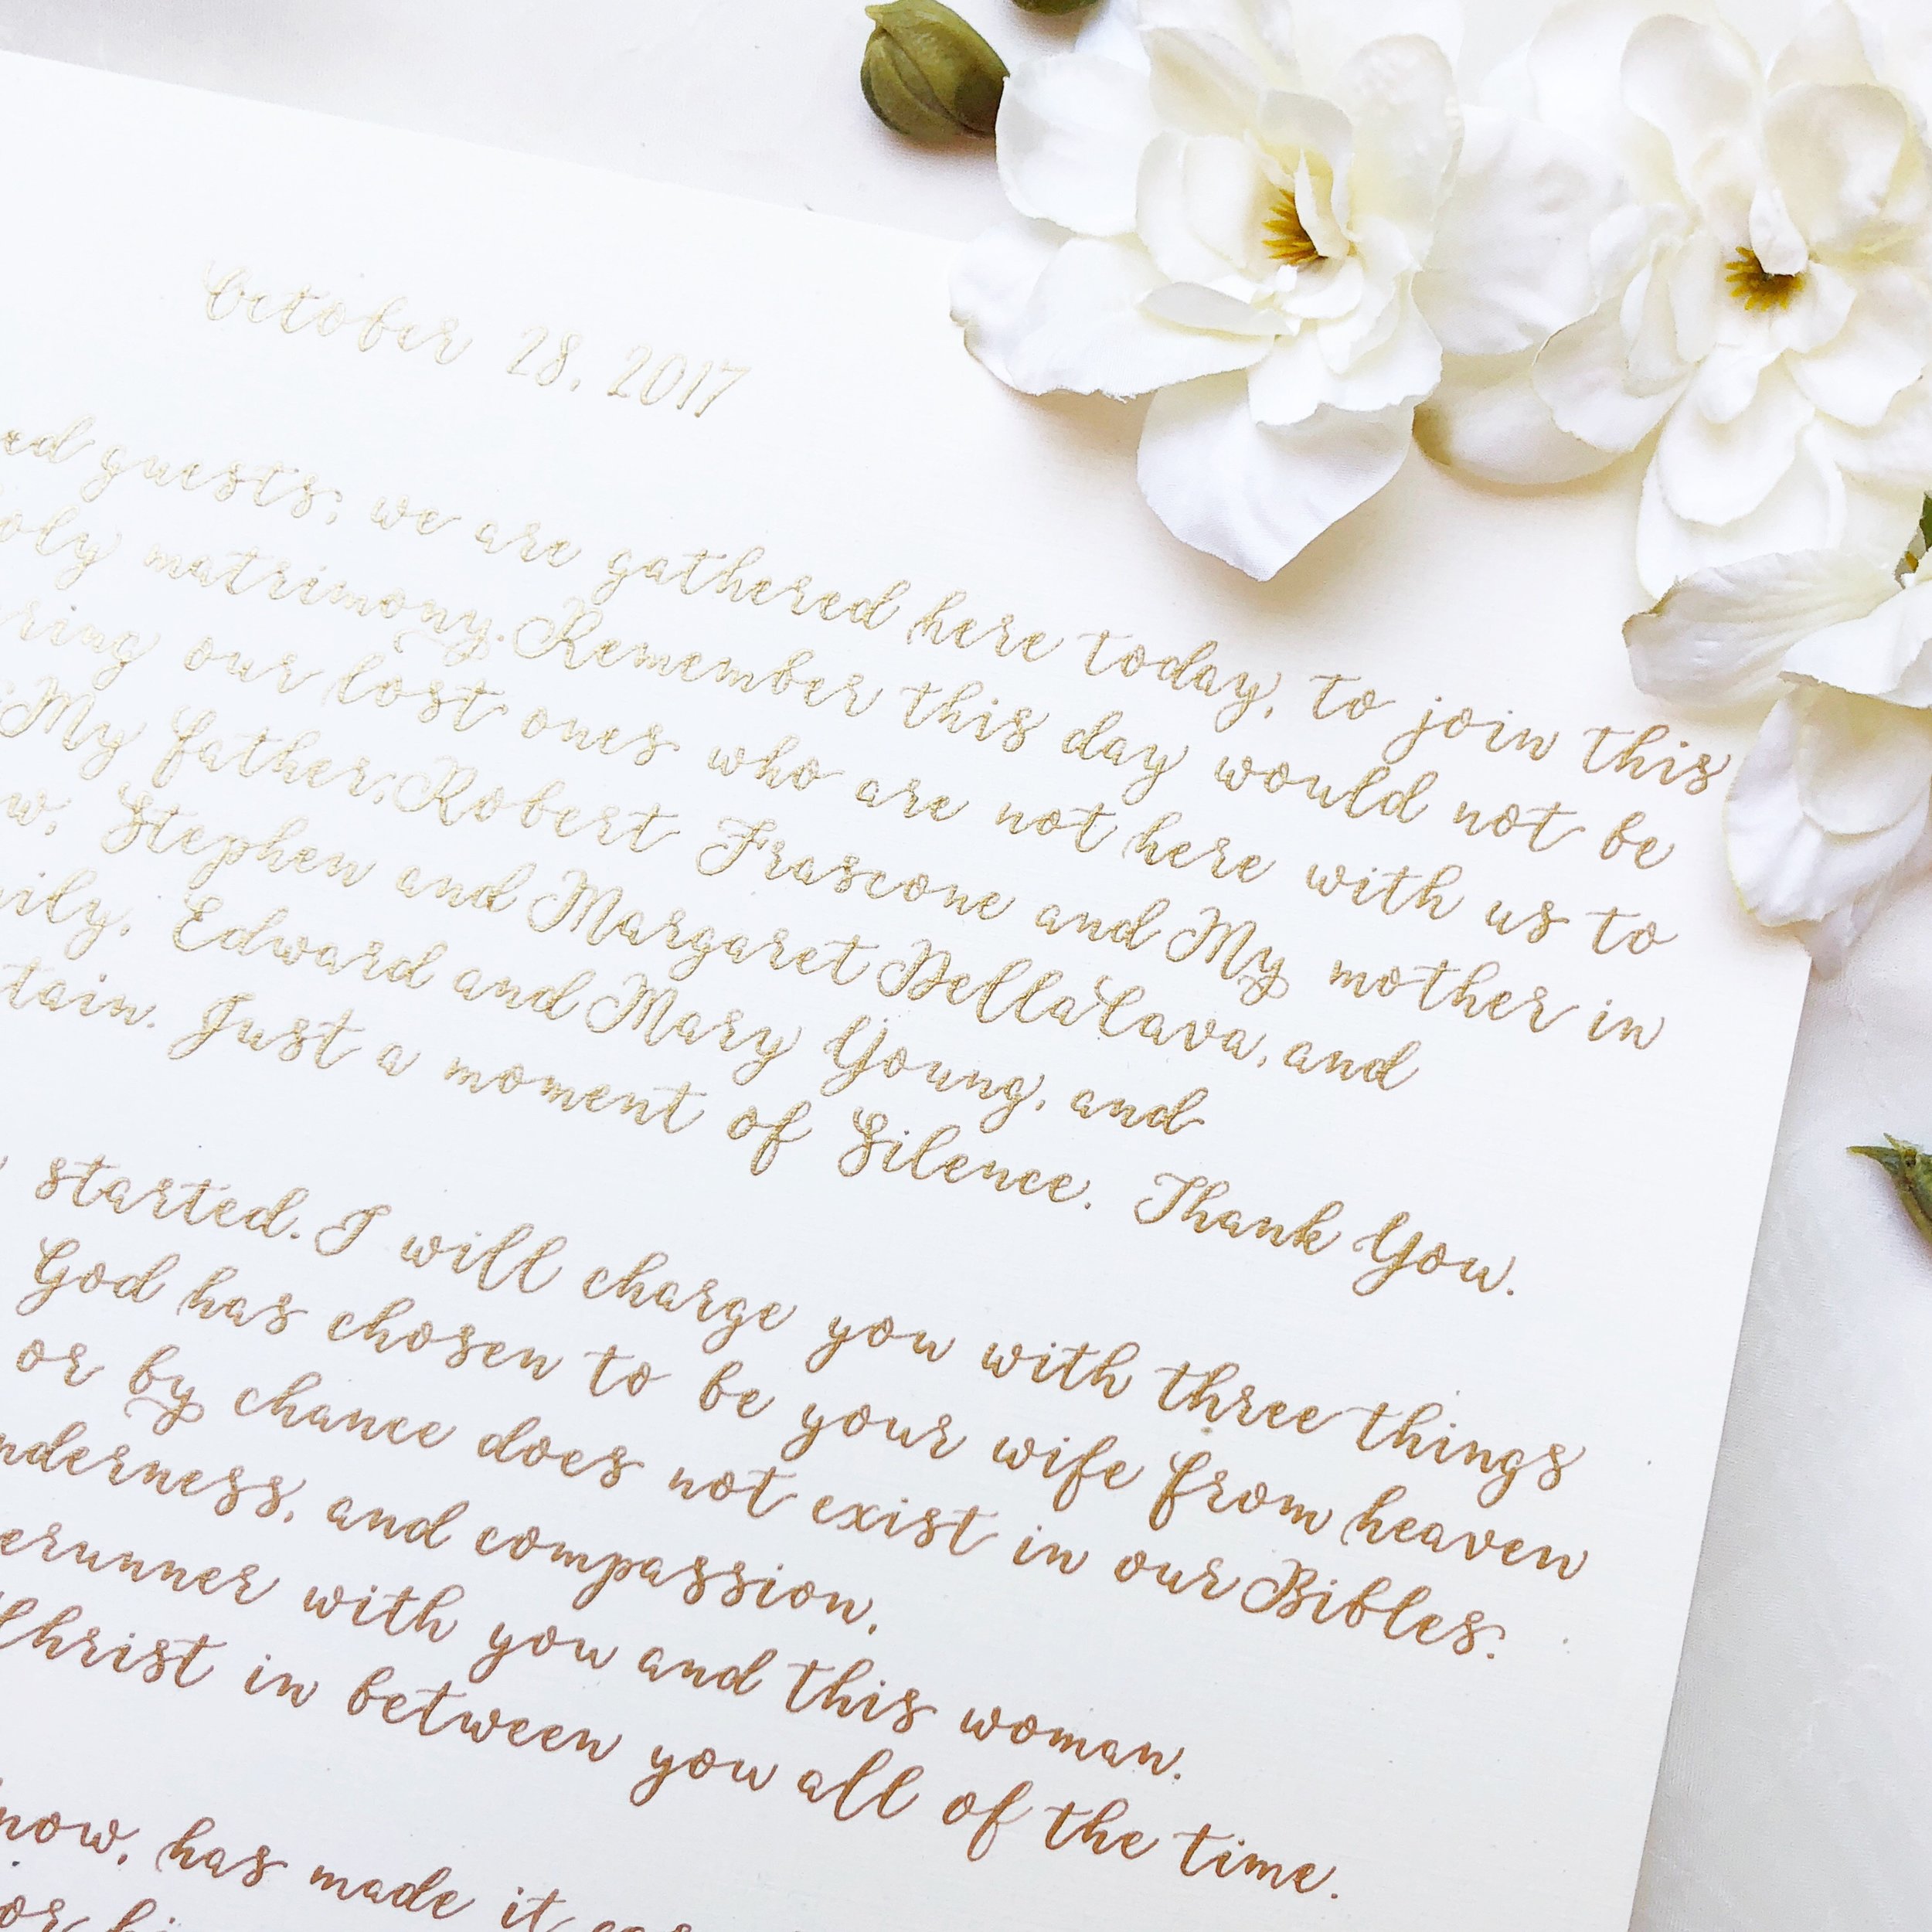 October 28, 2017
ed guests; we are gathered here today, to join this
oly matrimony. Remember this day would not be
ring our lost ones who are not here with us to
My father; Robert Frascone and My mother in
w, Stephen and Margaret DellaCava, and
ily, Edward and Mary Young, and
tain. Just a moment of Silence. Thank You.
started. I will charge you with three things
God has chosen to be your wife from heaven
or by chance does not exist in our Bibles.
nderness, and compassion.
erunner with you and this woman.
Christ in between you all of the time.
now, has made it
or